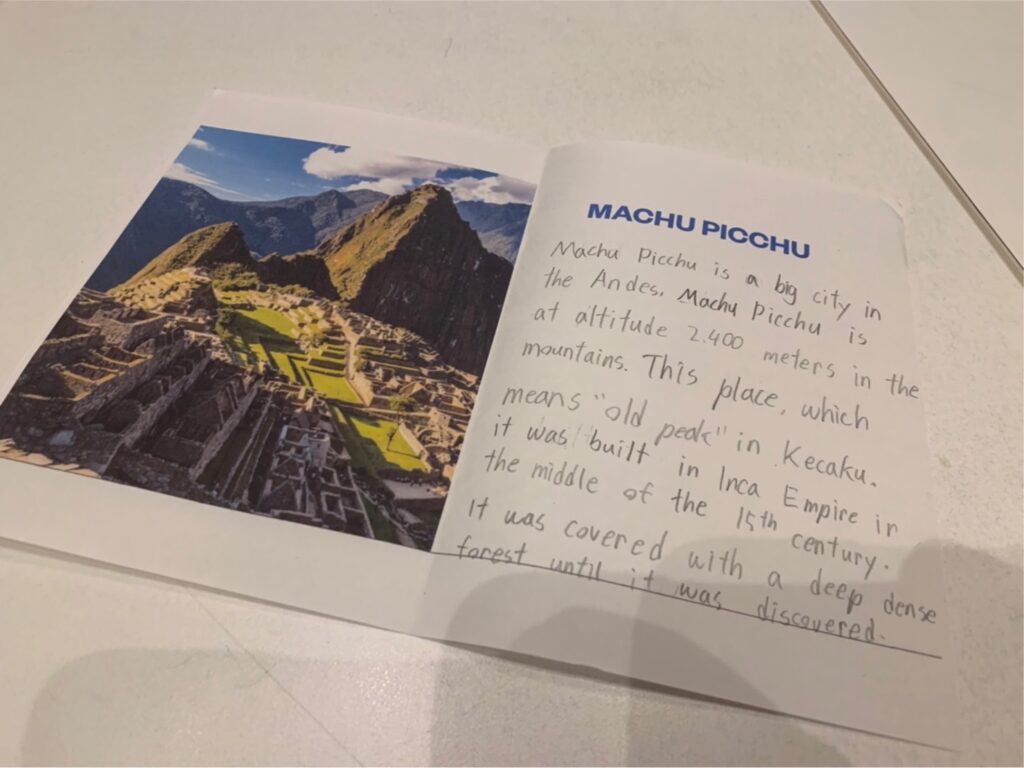 MACHU PICCHU
Machu Picchu is a big city in
the Andes. Machu Picchu is
at altitude 2.400 meters in the
mountains. This place, which
means "old peak" in Kecaku.
it was built in Inca Empire in
the middle of the 15th century.
It was covered with a deep dense
forest until it was discovered.